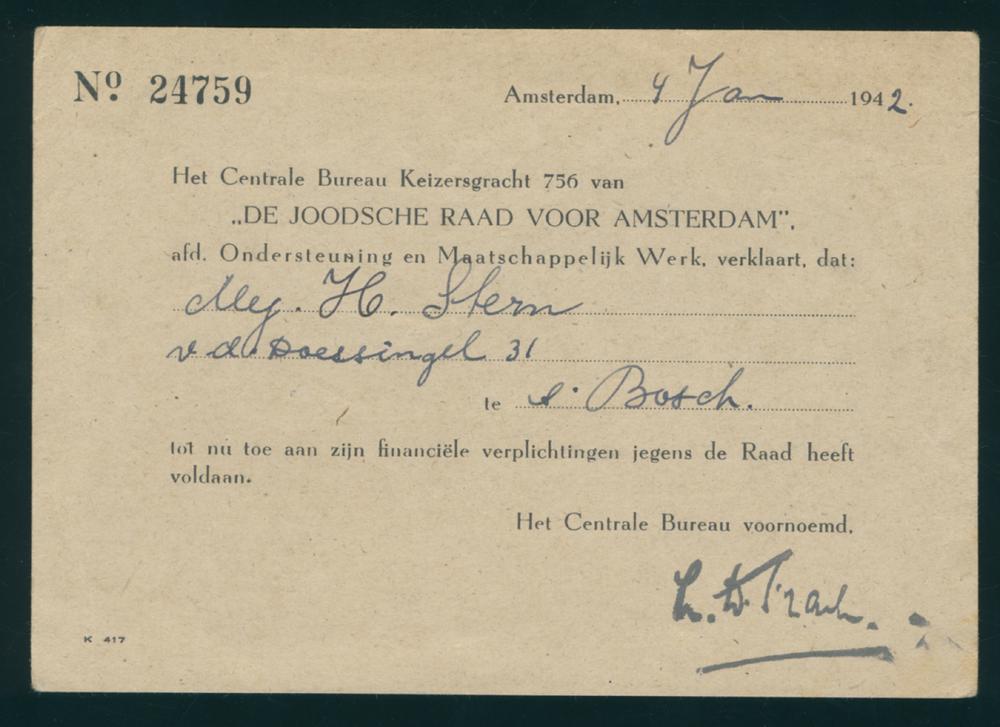 Nº 24759
Amsterdam, 4 Jan 1942.
Het Centrale Bureau Keizersgracht 756 van
„DE JOODSCHE RAAD VOOR AMSTERDAM”,
afd. Ondersteuning en Maatschappelijk Werk, verklaart, dat:
Mej. H. Stern
v.d. Does singel 31
te s. Bosch.
tot nu toe aan zijn financiële verplichtingen jegens de Raad heeft
voldaan.
Het Centrale Bureau voornoemd,
K 417